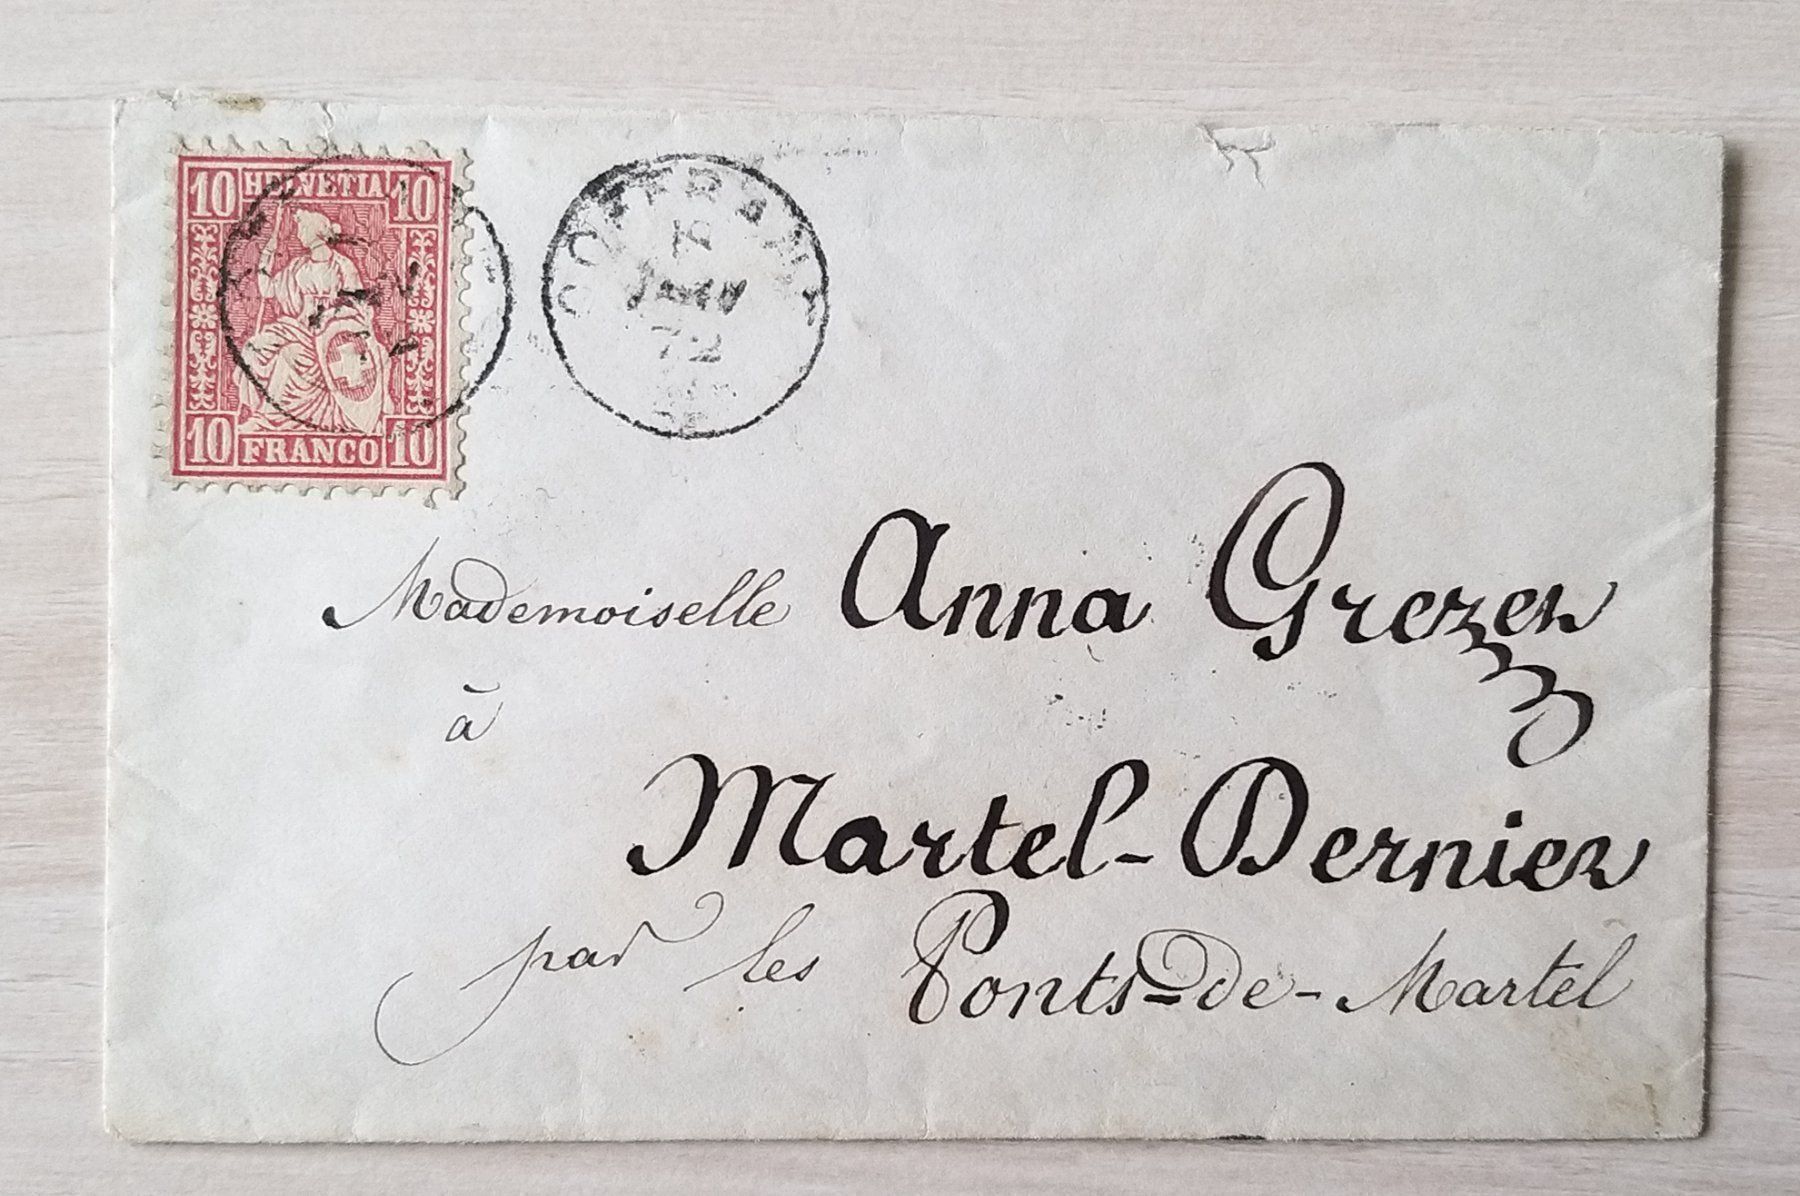 10 HELVETIA 10
10 FRANCO 10
COFFRANE
18
JANV
72
Mademoiselle Anna Grezer
à
Martel-Dernier
par les Ponts-de-Martel